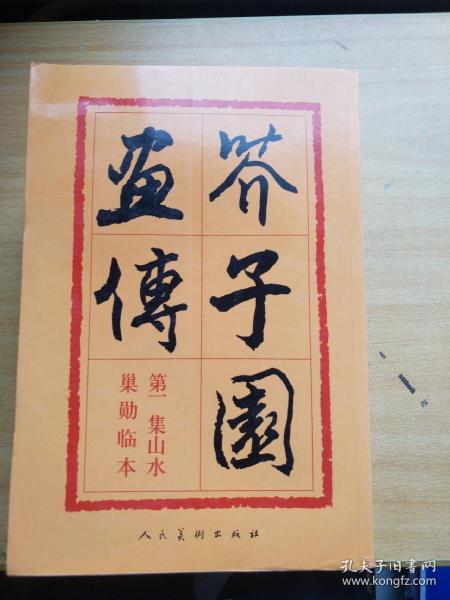 芥子園
畫傳
第一集山水
巢勋临本
人民美術出版社
孔夫子旧书网
www.kongfz.com